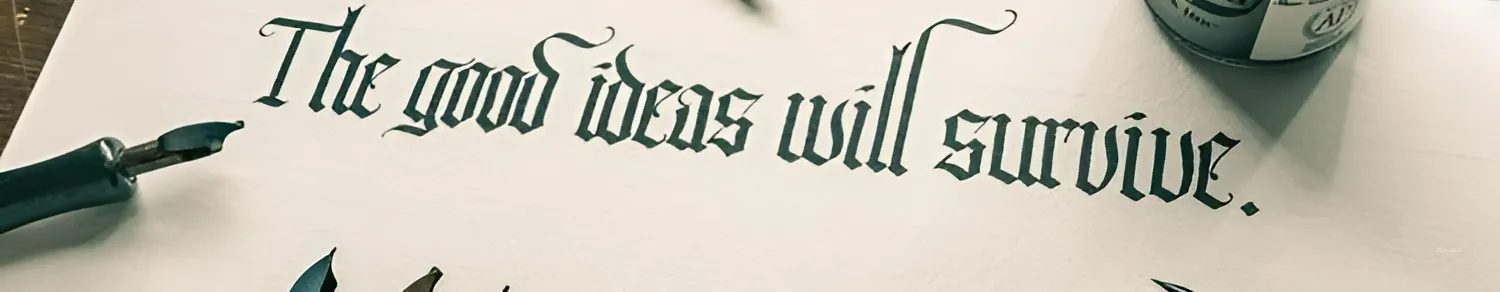 The good ideas will survive.